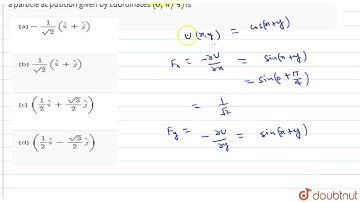 a particle at position given by coordinates (0, π/4) is
(a) − 1/√2 (î + ĵ)
(b) 1/√2 (î + ĵ)
(c) (1/2 î + √3/2 ĵ)
(d) (1/2 î − √3/2 ĵ)
U(x,y) = cos(x+y)
Fx = −∂U/∂x = sin(x+y)
= sin(0+π/4)
= 1/√2
Fy = −∂U/∂y = sin(x+y)
doubtnut